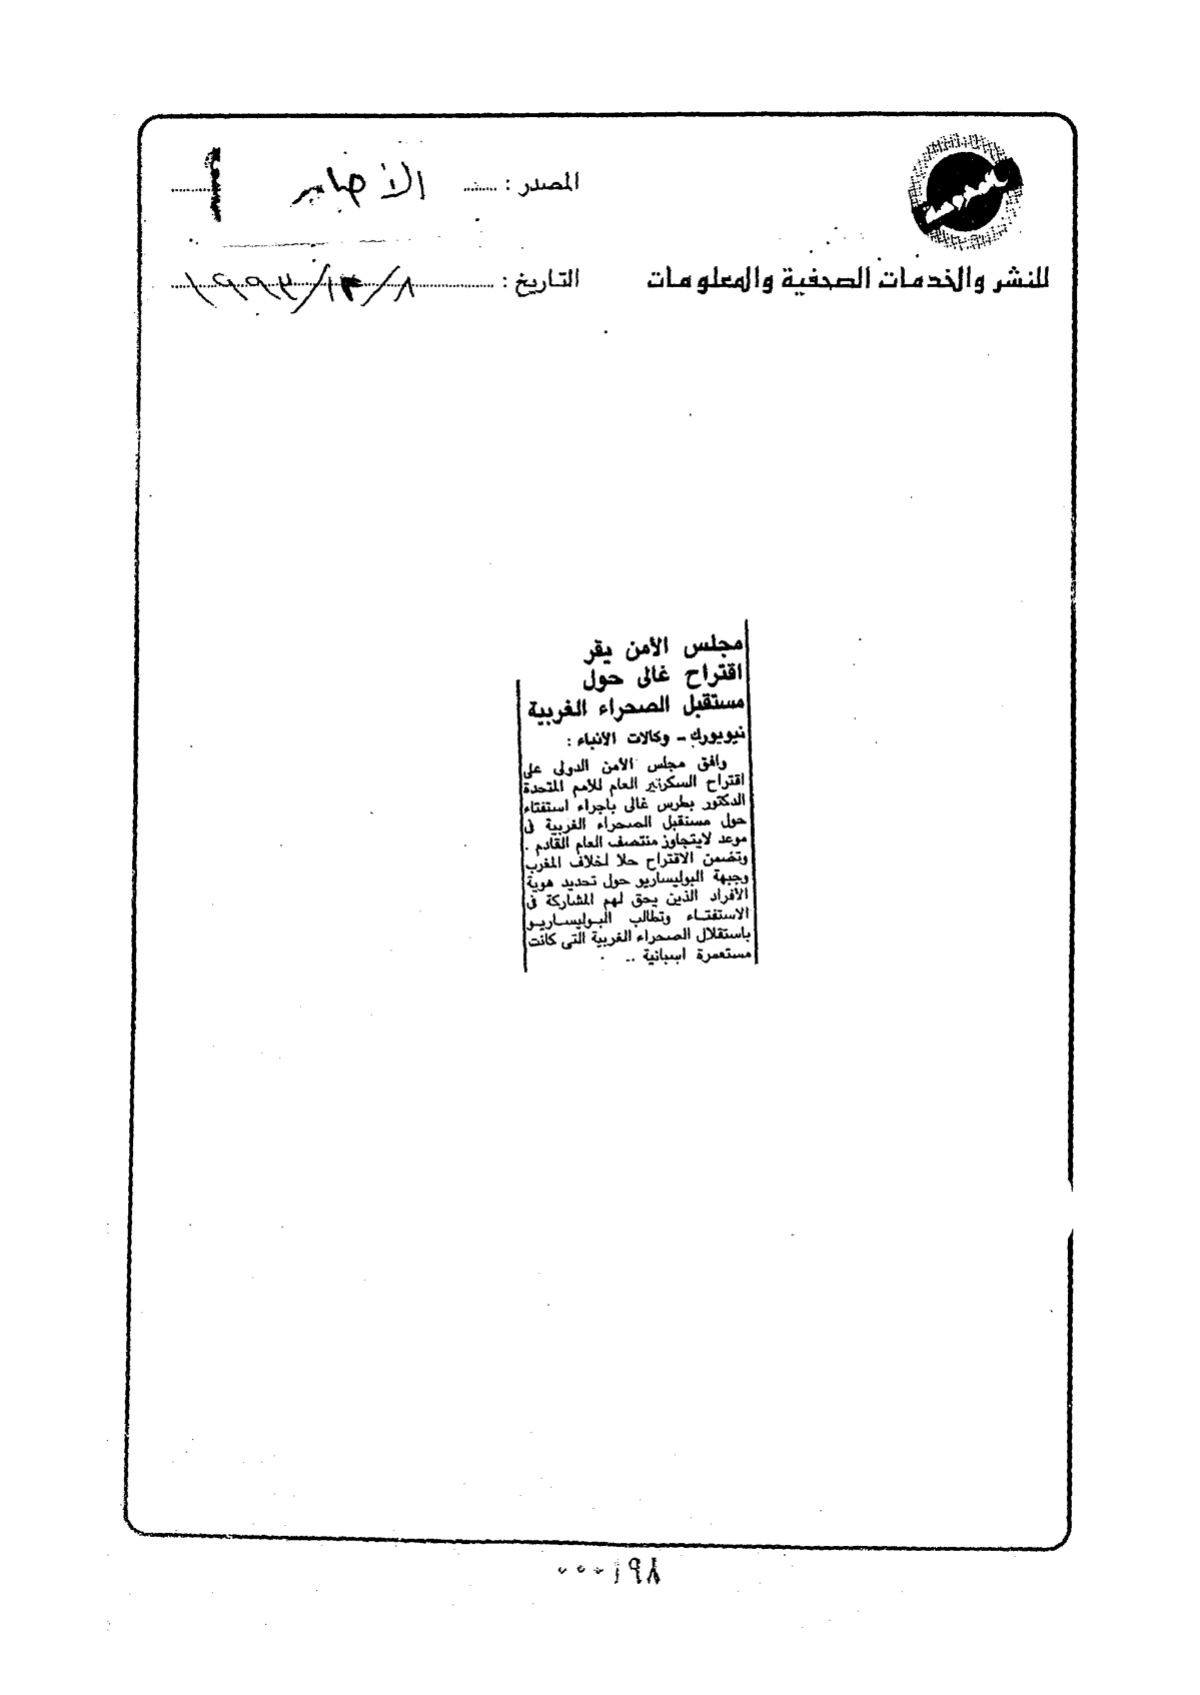 المصدر : الأخبار
للنشر والخدمات الصحفية والمعلومات
التاريخ : ٨/١٢/١٩٩٣
مجلس الأمن يقر
اقتراح غالى حول
مستقبل الصحراء الغربية
نيويورك - وكالات الأنباء :
وافق مجلس الأمن الدولى على
اقتراح السكرتير العام للأمم المتحدة
الدكتور بطرس غالى باجراء استفتاء
حول مستقبل الصحراء الغربية فى
موعد لايتجاوز منتصف العام القادم .
وتضمن الاقتراح حلا لخلاف المغرب
وجبهة البوليساريو حول تحديد هوية
الأفراد الذين يحق لهم المشاركة فى
الاستفتاء وتطالب البوليساريو
باستقلال الصحراء الغربية التى كانت
مستعمرة اسبانية ..
٠٠٠١٩٨